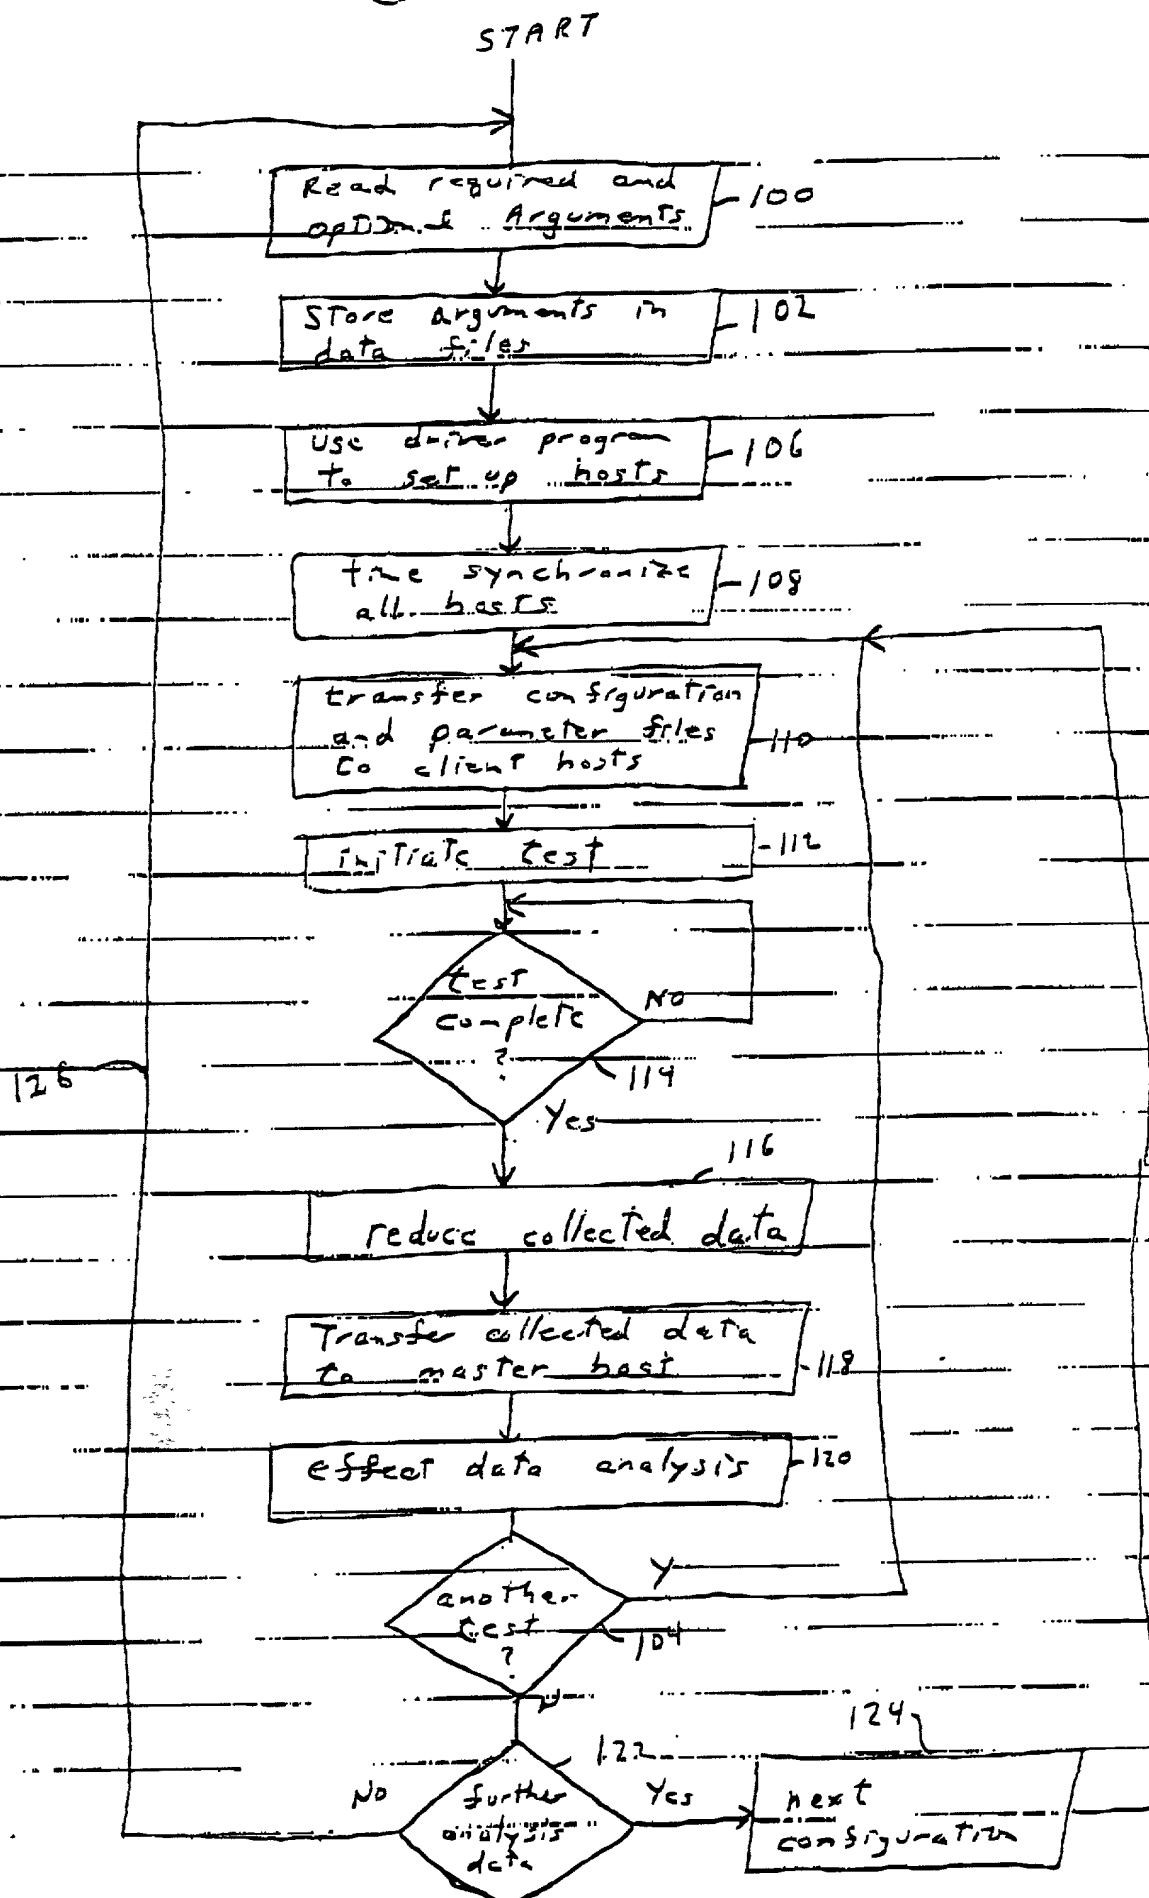 START
Read required and
optional Arguments
100
Store arguments in
data files
102
use driver program
to set up hosts
106
time synchronize
all hosts
108
transfer configuration
and parameter files
to client hosts
110
initiate test
112
test
complete
?
No
114
Yes
126
116
reduce collected data
Transfer collected data
to master host
118
effect data analysis
120
another
test
?
Y
104
N
122
124
No
further
analysis
data
Yes
next
configuration